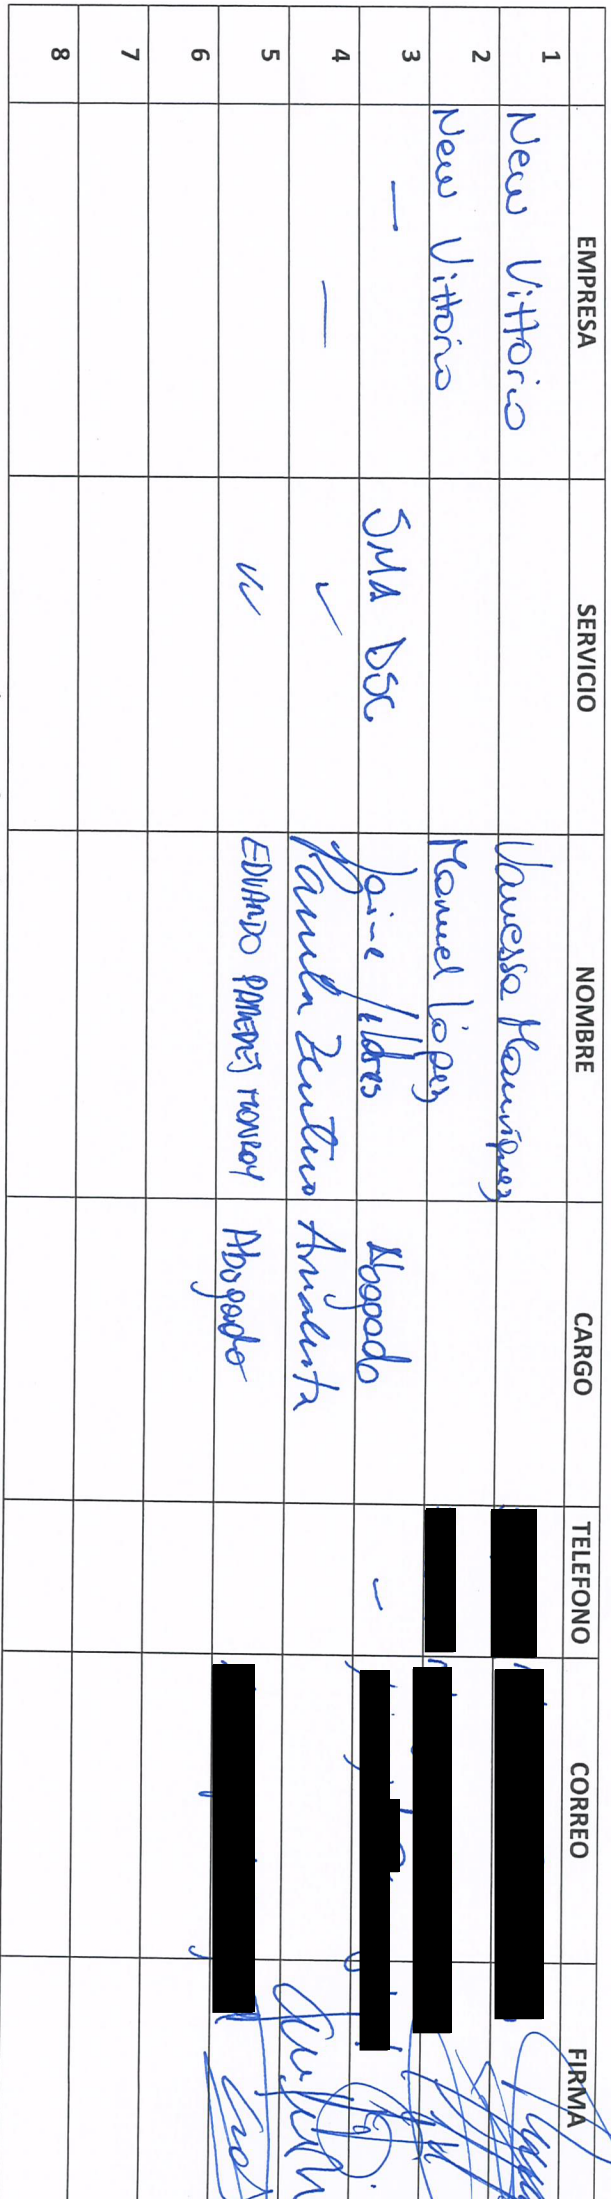 EMPRESA SERVICIO NOMBRE CARGO TELEFONO CORREO FIRMA
1 New Vittorio Vanessa Manríquez
2 New Vittorio Manuel López
3 — SMA DSC Jaime Abogado -
4 — ✓ Pamela Zenteno Analista
5 EDUARDO PAREDES MONROY Abogado
6
7
8